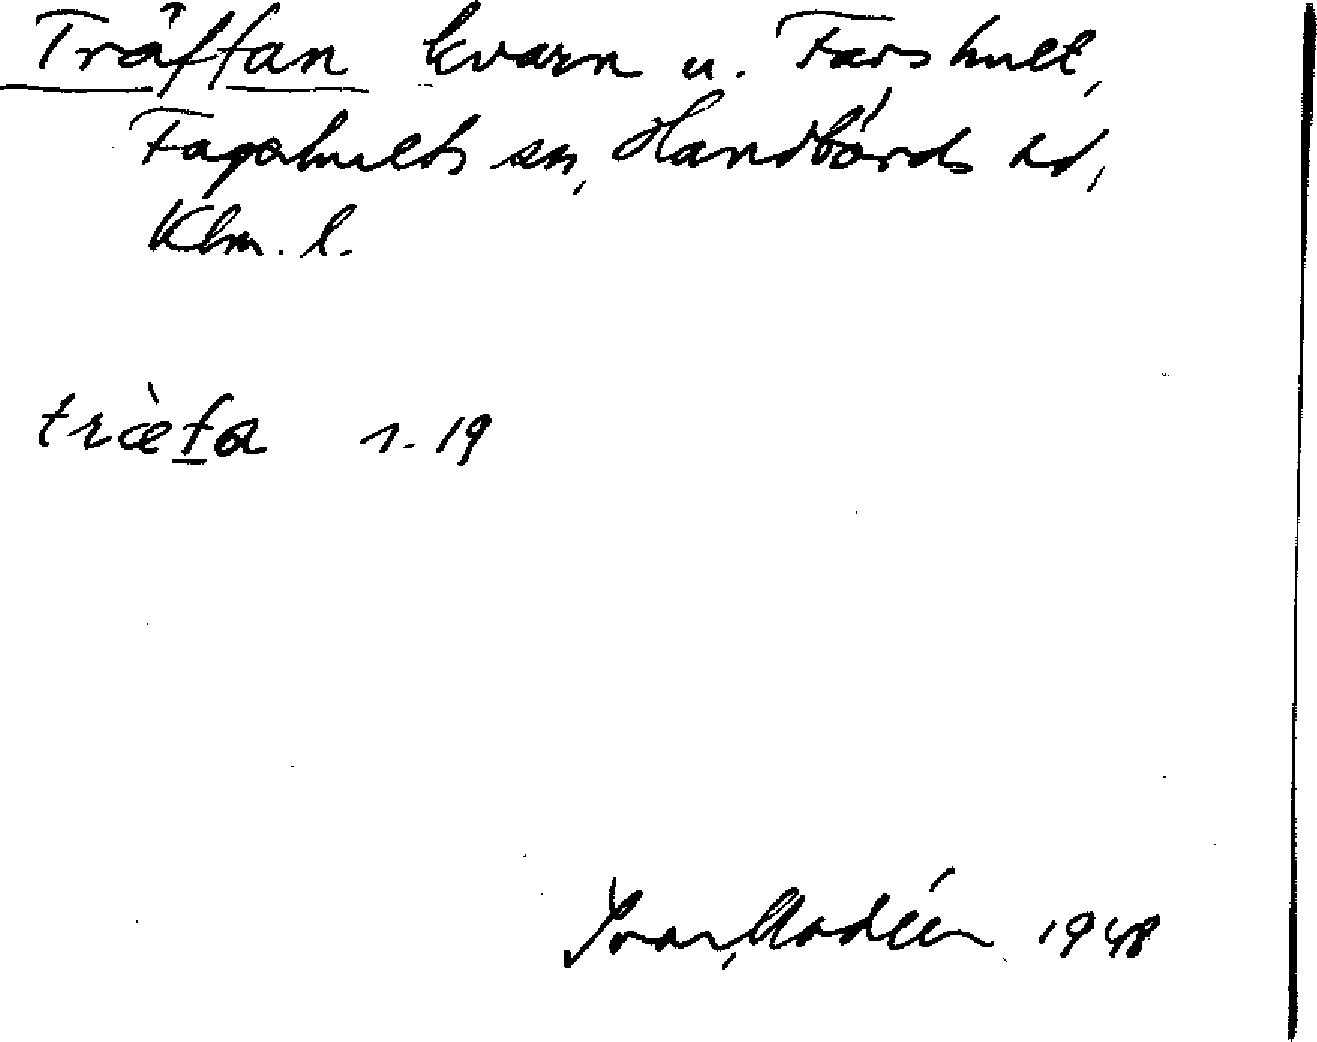 Träffan kvarn u. Farshult,
Fagerhults sn, Handbörds hd,
Klm. l.
træ̀fa s. 19
Ivar Modéer 1948